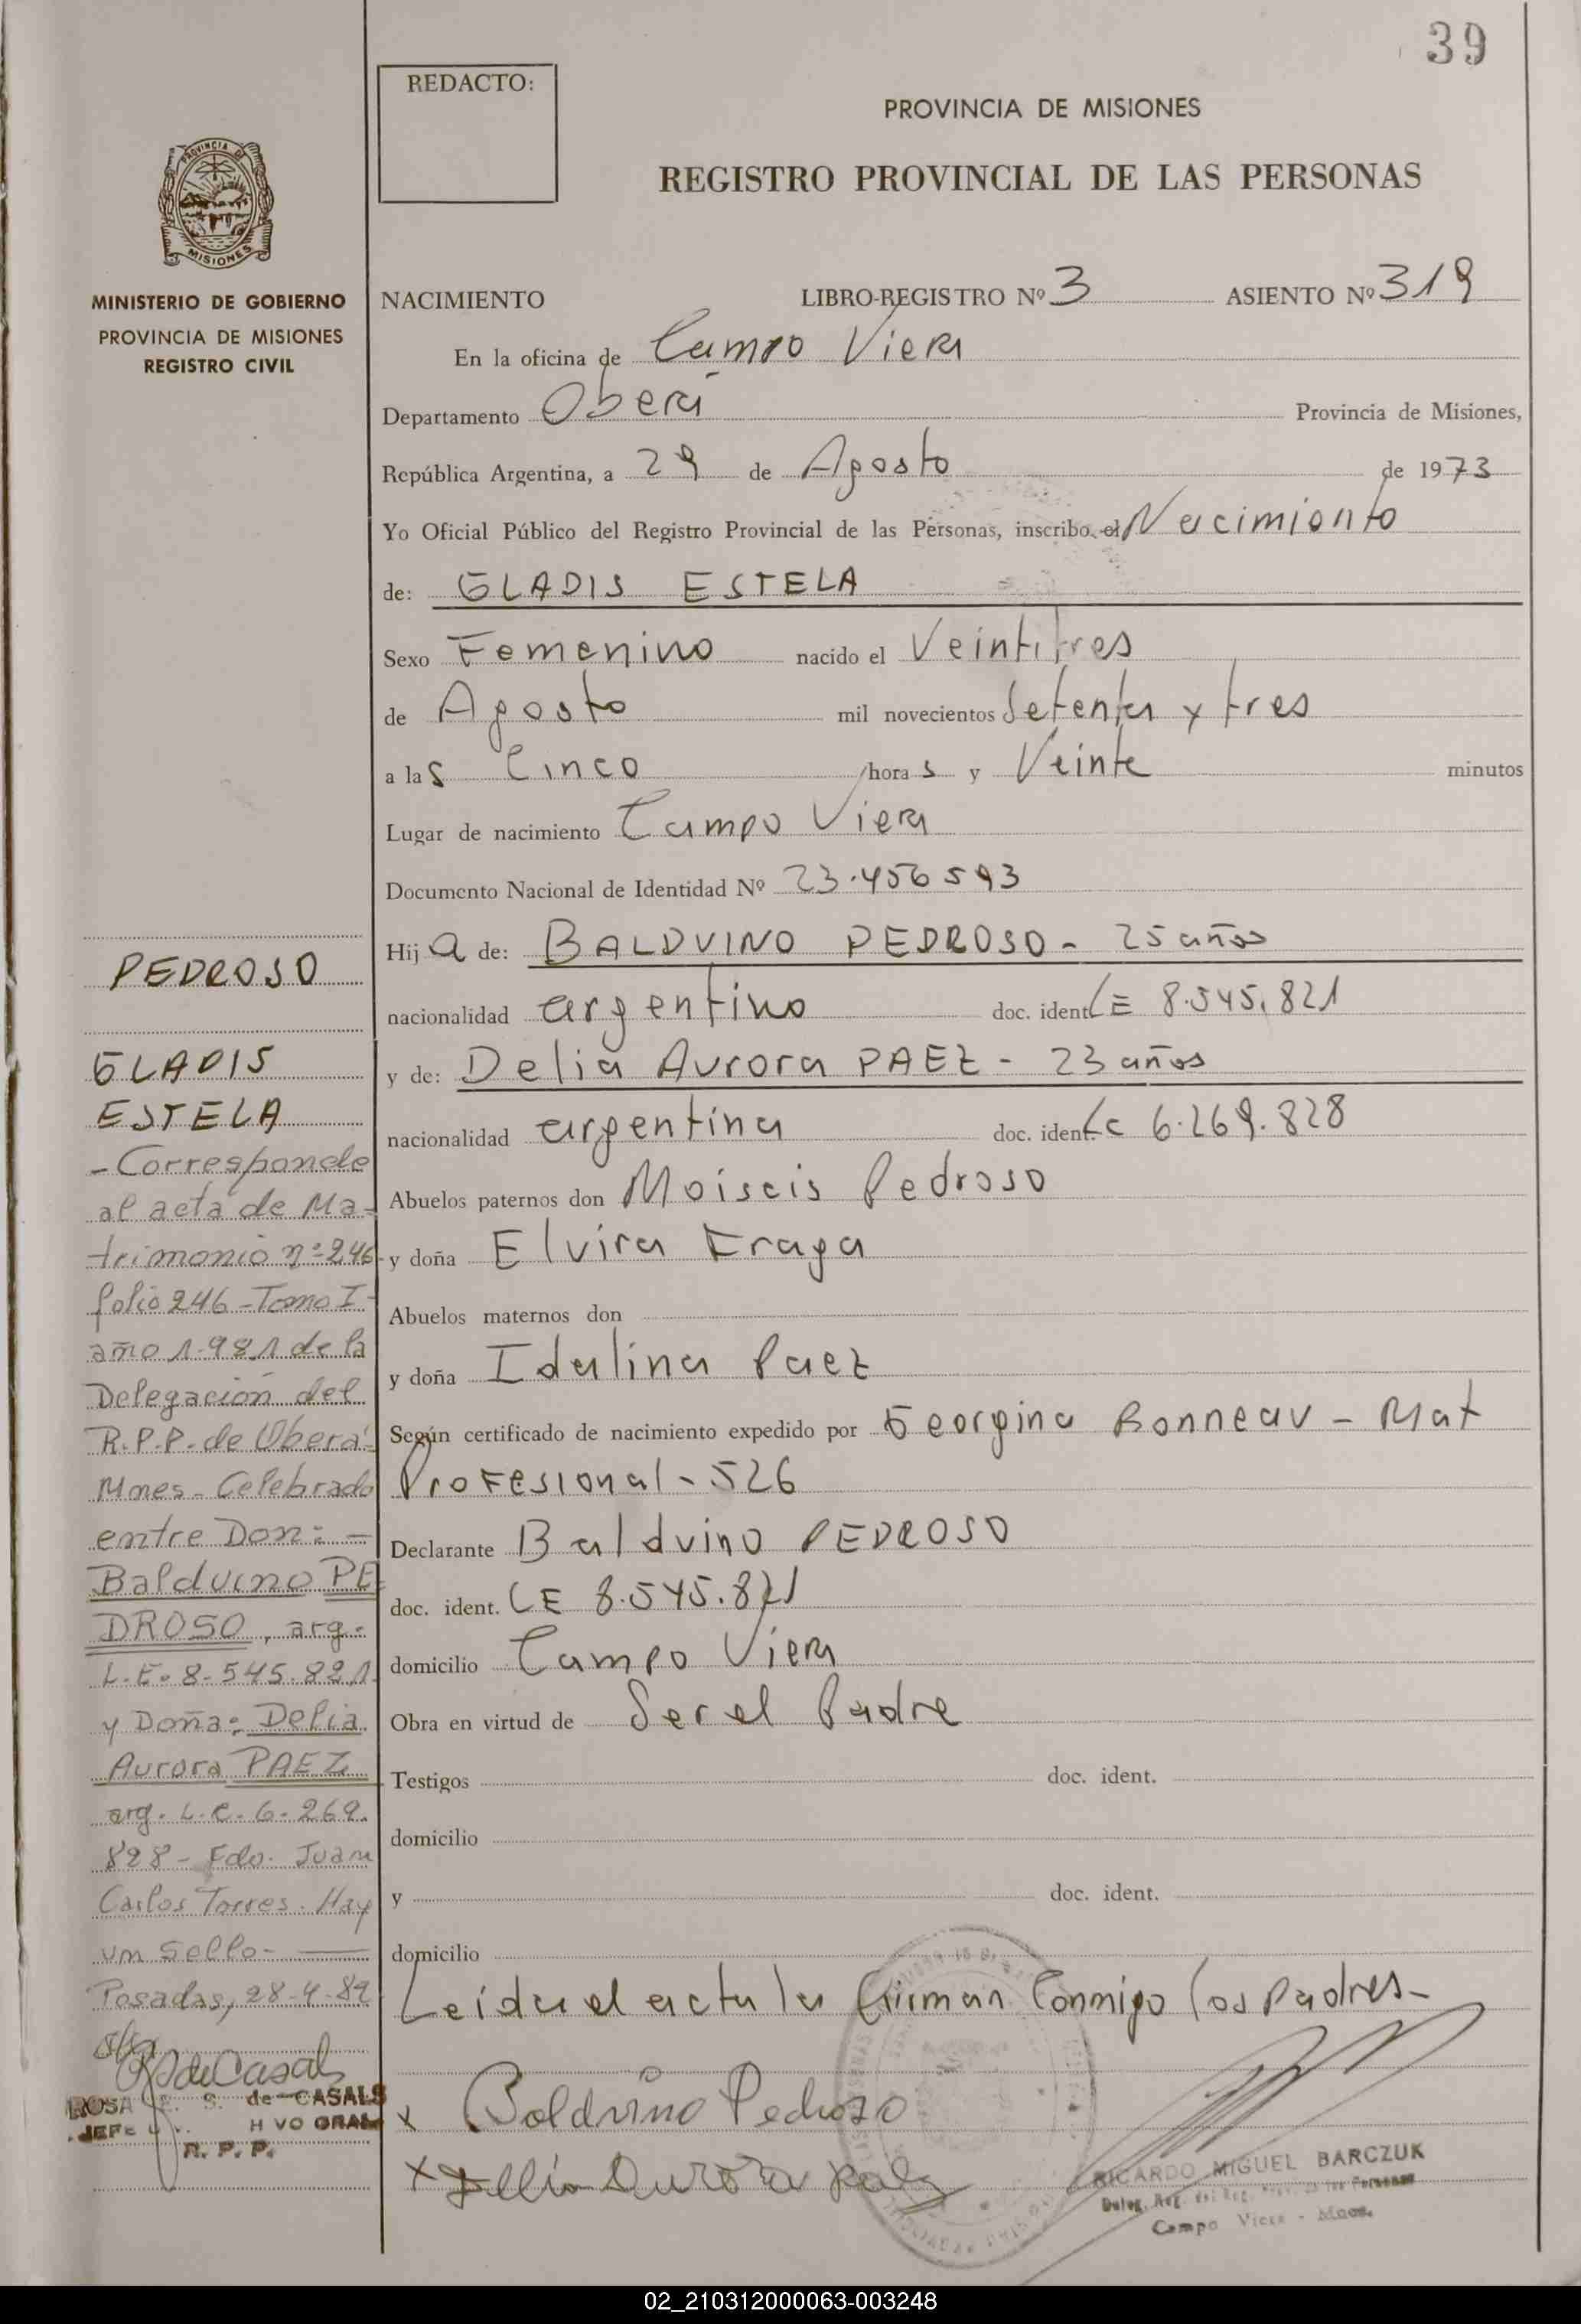 39
REDACTO:
PROVINCIA DE MISIONES
REGISTRO PROVINCIAL DE LAS PERSONAS
PROVINCIA DE
MISIONES
MINISTERIO DE GOBIERNO
PROVINCIA DE MISIONES
REGISTRO CIVIL
NACIMIENTO LIBRO-REGISTRO Nº 3 ASIENTO Nº 319
En la oficina de Campo Viera
Departamento Oberá Provincia de Misiones,
República Argentina, a 29 de Agosto de 1973
Yo Oficial Público del Registro Provincial de las Personas, inscribo el Nacimiento
de: GLADIS ESTELA
Sexo Femenino nacido el Veintitres
de Agosto mil novecientos Setenta y tres
a las Cinco horas y Veinte minutos
Lugar de nacimiento Campo Viera
Documento Nacional de Identidad Nº 23.456593
Hija de: BALDVINO PEDROSO - 25 años
nacionalidad argentino doc. ident. LE 8.545.821
y de: Delia Aurora PAEZ - 23 años
nacionalidad argentina doc. ident. LC 6.269.828
Abuelos paternos don Moiseis Pedroso
y doña Elvira Fraga
Abuelos maternos don
y doña Idalina Paez
Según certificado de nacimiento expedido por Georgina Bonneau - Mat
Profesional - 526
Declarante Baldvino PEDROSO
doc. ident. LE 8.545.821
domicilio Campo Viera
Obra en virtud de Ser el Padre
Testigos doc. ident.
domicilio
y doc. ident.
domicilio
Leida el acta la firman Conmigo los Padres-
x Baldvino Pedrozo
x Dellia Aurora Paez
RICARDO MIGUEL BARCZUK
Campo Viera - Mnes.
PEDROSO
GLADIS
ESTELA
- Corresponde
al acta de Ma-
trimonio nº 246
folio 246 - Tomo I -
año 1.981 de la
Delegación del
R.P.P. de Oberá -
Mnes - Celebrado
entre Don: -
Balduino PE-
DROSO, arg.
L.E. 8.545.821
y Doña: Delia
Aurora PAEZ
arg. L.C. 6.269.
828 - Fdo. Juan
Carlos Torres. Hay
un sello -
Posadas, 28-4-82
R de Casals
ROSA E. S. de CASALS
R. P. P.
02_210312000063-003248